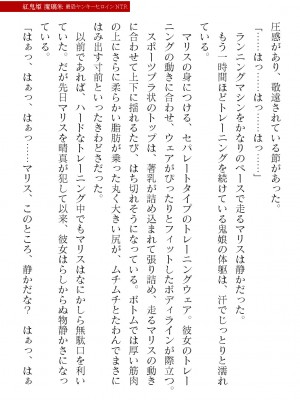 紅鬼姫 魔璃朱 最強ヤンキーヒロインNTR
圧感があり、敬遠されている節があった。
「……はっ……はっ……はっ……」
ランニングマシンをかなりのペースで走るマリスは静かだった。
もう一時間ほどトレーニングを続けている鬼娘の体躯は、汗でじっとりと濡れ
ている。
マリスの身につける、セパレートタイプのトレーニングウェア。彼女のトレー
ニングの動きに合わせ、ウェアがぴったりとフィットしたボディラインが際立つ。
スポーツブラ状のトップは、著乳が詰め込まれて張り詰め、走るマリスの動き
に合わせて上下に揺れ、はち切れそうになっている。ボトムでは厚い筋肉
の上にさらに柔らかい脂肪が乗った丸く大きい尻が、ムチムチとたわみ動き、
はみ出す寸前といったきわどさだった。
以前であれば、ハードなトレーニング中でもマリスはなにかしら無駄口を利い
ていた。だが先日マリスを晴真が犯して以来、彼女はらしからぬ物静かさになっ
ていた。
「はぁっ、はぁっ、はぁっ……マリス、このところ、静かだな？ はぁっ、はぁ